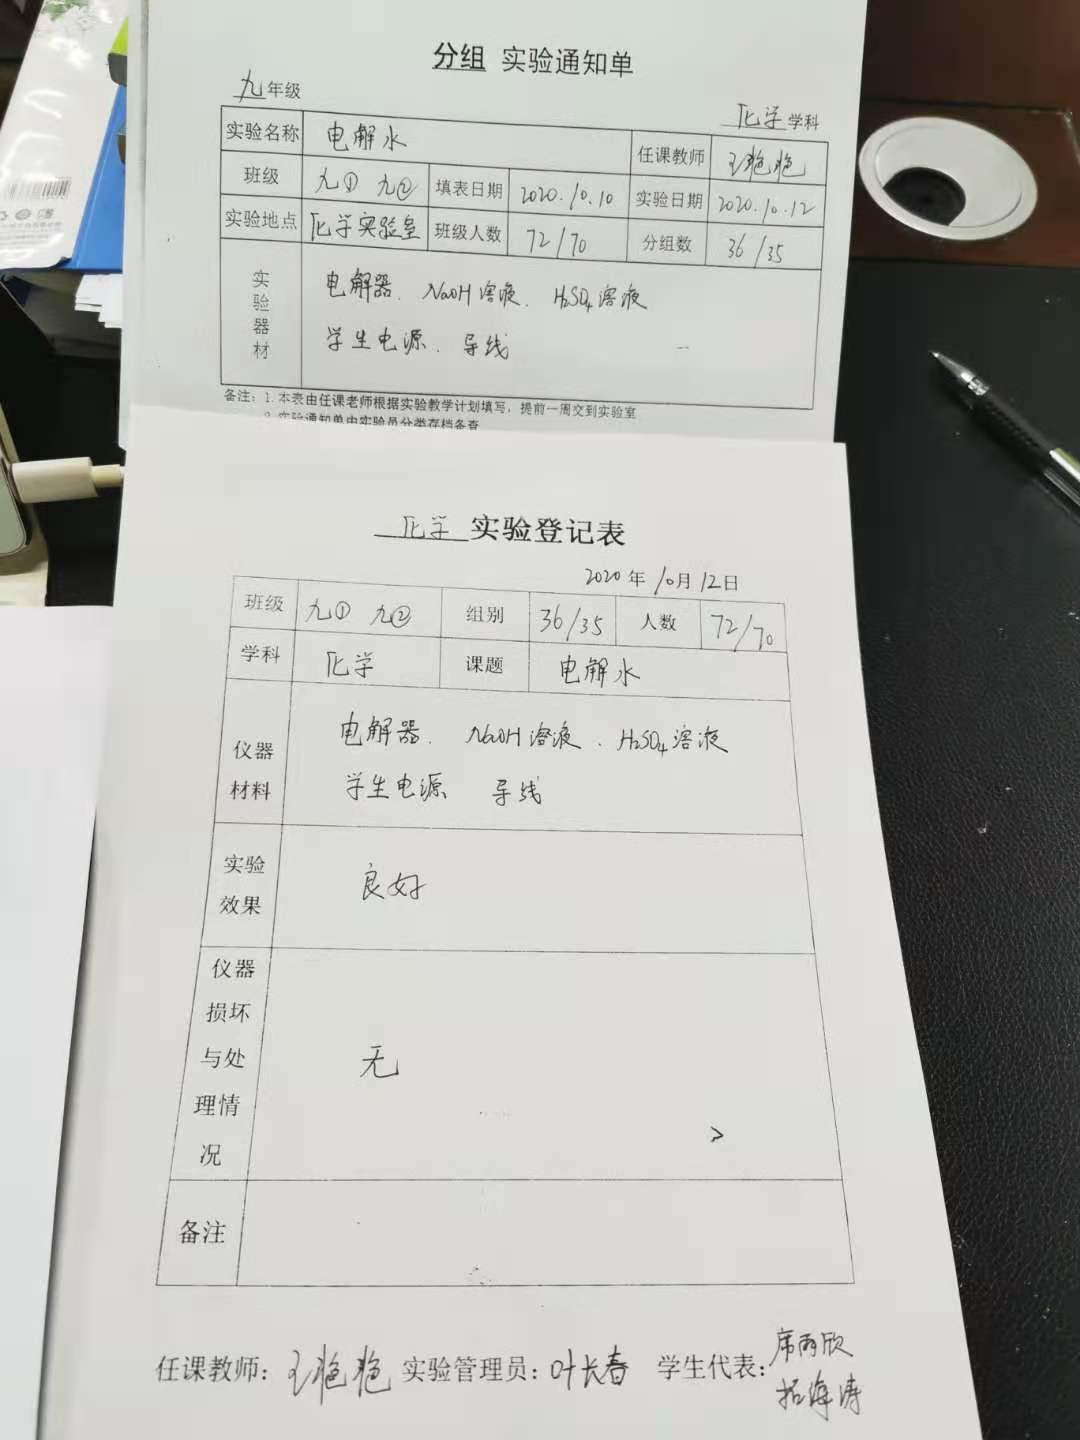 分组 实验通知单
九年级 化学学科
实验名称 电解水 任课教师 王艳艳
班级 九① 九② 填表日期 2020.10.10 实验日期 2020.10.12
实验地点 化学实验室 班级人数 72/70 分组数 36/35
实验器材 电解器、NaOH溶液、H₂SO₄溶液
学生电源、导线
备注：1.本表由任课老师根据实验教学计划填写，提前一周交到实验室
2.实验通知单由实验员分类存档备查
化学 实验登记表
2020年10月12日
班级 九① 九② 组别 36/35 人数 72/70
学科 化学 课题 电解水
仪器材料 电解器、NaOH溶液、H₂SO₄溶液
学生电源 导线
实验效果 良好
仪器损坏与处理情况 无
备注
任课教师：王艳艳 实验管理员：叶长春 学生代表：席雨欣
海涛